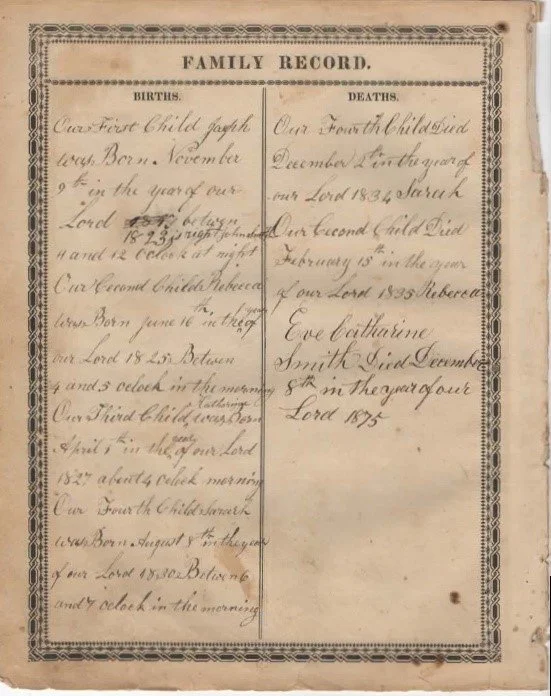 FAMILY RECORD.
BIRTHS.
Our First Child Joseph
was Born November
9th in the year of our
Lord betwen
1823 is right John Smith
4 and 12 oclock at night
Our Cecond Child Rebecca
was Born June 16th in the year of
our Lord 1825 Betwen
4 and 5 oclock in the morning
Our Third Child Catharine was Born
April 1th in the year of our Lord
1827 about 4 oclock morning
Our Fourth Child Sareh
was Born August 8th in the year
of our Lord 1830 Betwen 6
and 7 oclock in the morning
DEATHS.
Our Fourth Child Died
December 2th in the year of
our Lord 1834 Sareh
Our Cecond Child Died
February 15th in the year
of our Lord 1835 Rebecca
Eve Catharine
Smith Died December
8th in the year of our
Lord 1875